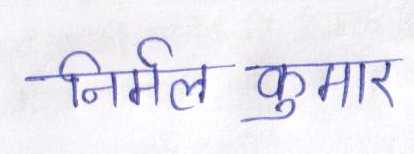 निर्मल कुमार